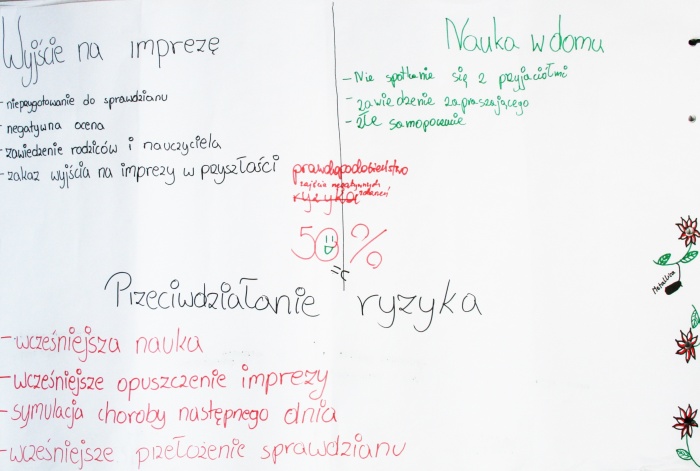 Wyjście na imprezę
- nieprzygotowanie do sprawdzianu
- negatywna ocena
- zawiedzenie rodziców i nauczyciela
- zakaz wyjścia na imprezy w przyszłości
Nauka w domu
- Nie spotkanie się z przyjaciółmi
- zawiedzenie zapraszającego
- złe samopoczucie
prawdopodobieństwo
zajścia negatywnych
ryzyka zdarzeń
50%
Przeciwdziałanie ryzyka
- wcześniejsza nauka
- wcześniejsze opuszczenie imprezy
- symulacja choroby następnego dnia
- wcześniejsze przełożenie sprawdzianu
Metallica